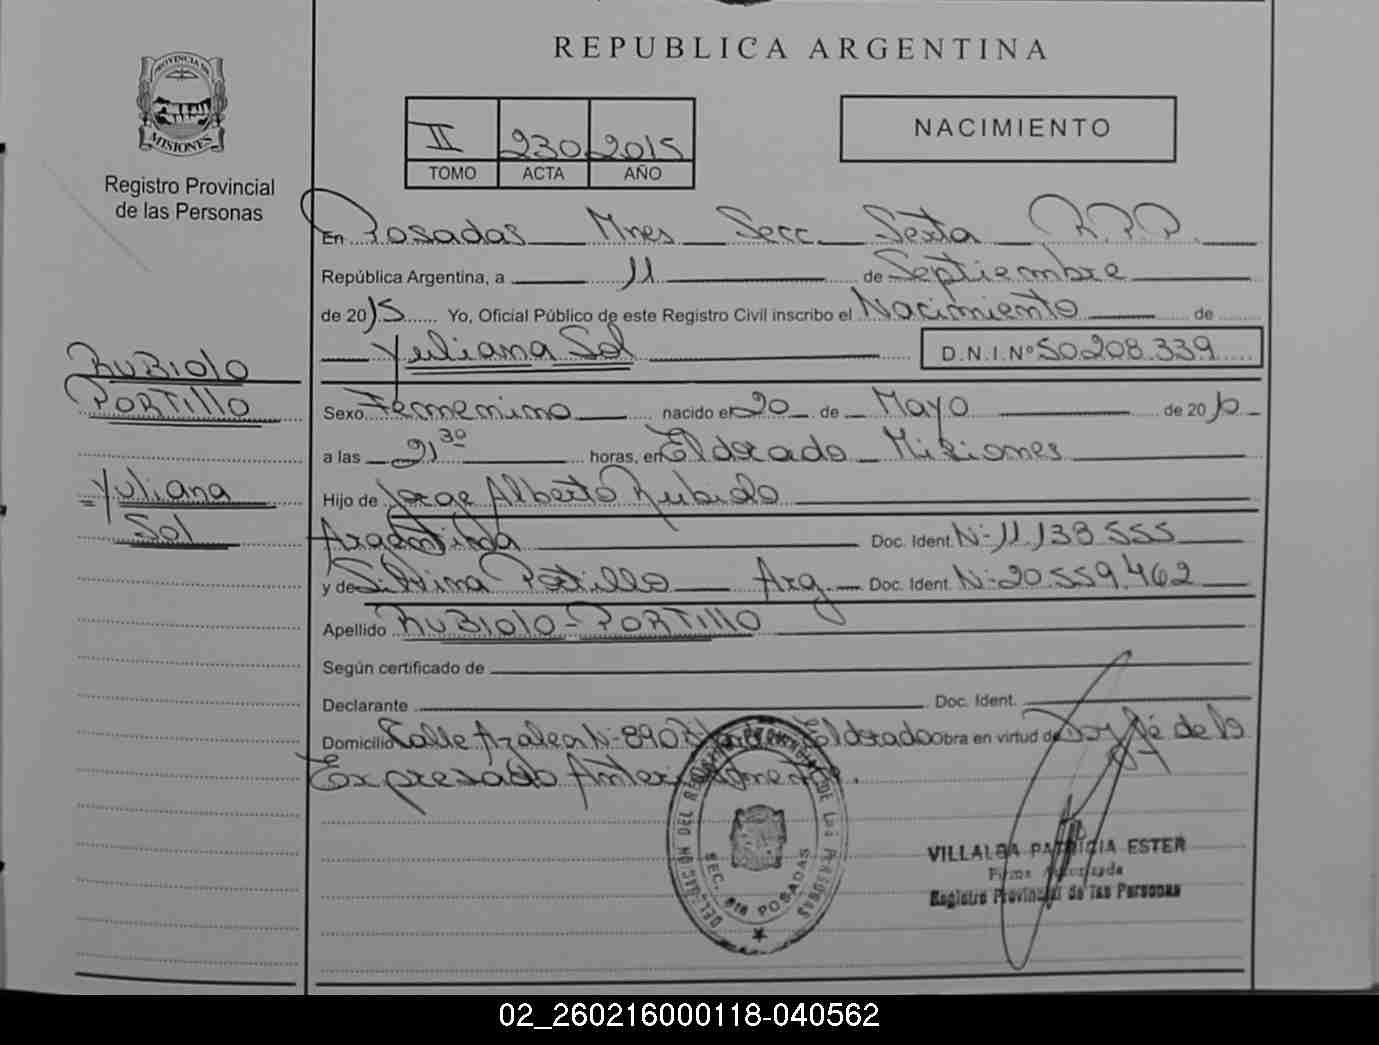 REPUBLICA ARGENTINA
PROVINCIA DE
MISIONES
Registro Provincial
de las Personas
II 230 2015
TOMO ACTA AÑO
NACIMIENTO
En Posadas Mnes Secc. Sexta R.P.P.
República Argentina, a 11 de Septiembre
de 2015 Yo, Oficial Público de este Registro Civil inscribo el Nacimiento de
Yuliana Sol D.N.I.Nº 50.208.339
RUBIOLO
PORTILLO
Yuliana
Sol
Sexo Femenino nacido el 20 de Mayo de 2010
a las 21 30 horas, en Eldorado Misiones
Hijo de Jorge Alberto Rubiolo
Argentina Doc. Ident. Nº 11.138.555
y de Silvina Portillo Arg. Doc. Ident. Nº 20.559.462
Apellido RUBIOLO-PORTILLO
Según certificado de
Declarante Doc. Ident.
Domicilio Calle Azalea Nº 890 Eldorado Obra en virtud de Doy fé de lo
Expresado Anteriormente.
DELEGACION DEL REGISTRO PROVINCIAL DE LAS PERSONAS
SEC. 6ta POSADAS
VILLALBA PATRICIA ESTER
Firma Autorizada
Registro Provincial de las Personas
02_260216000118-040562